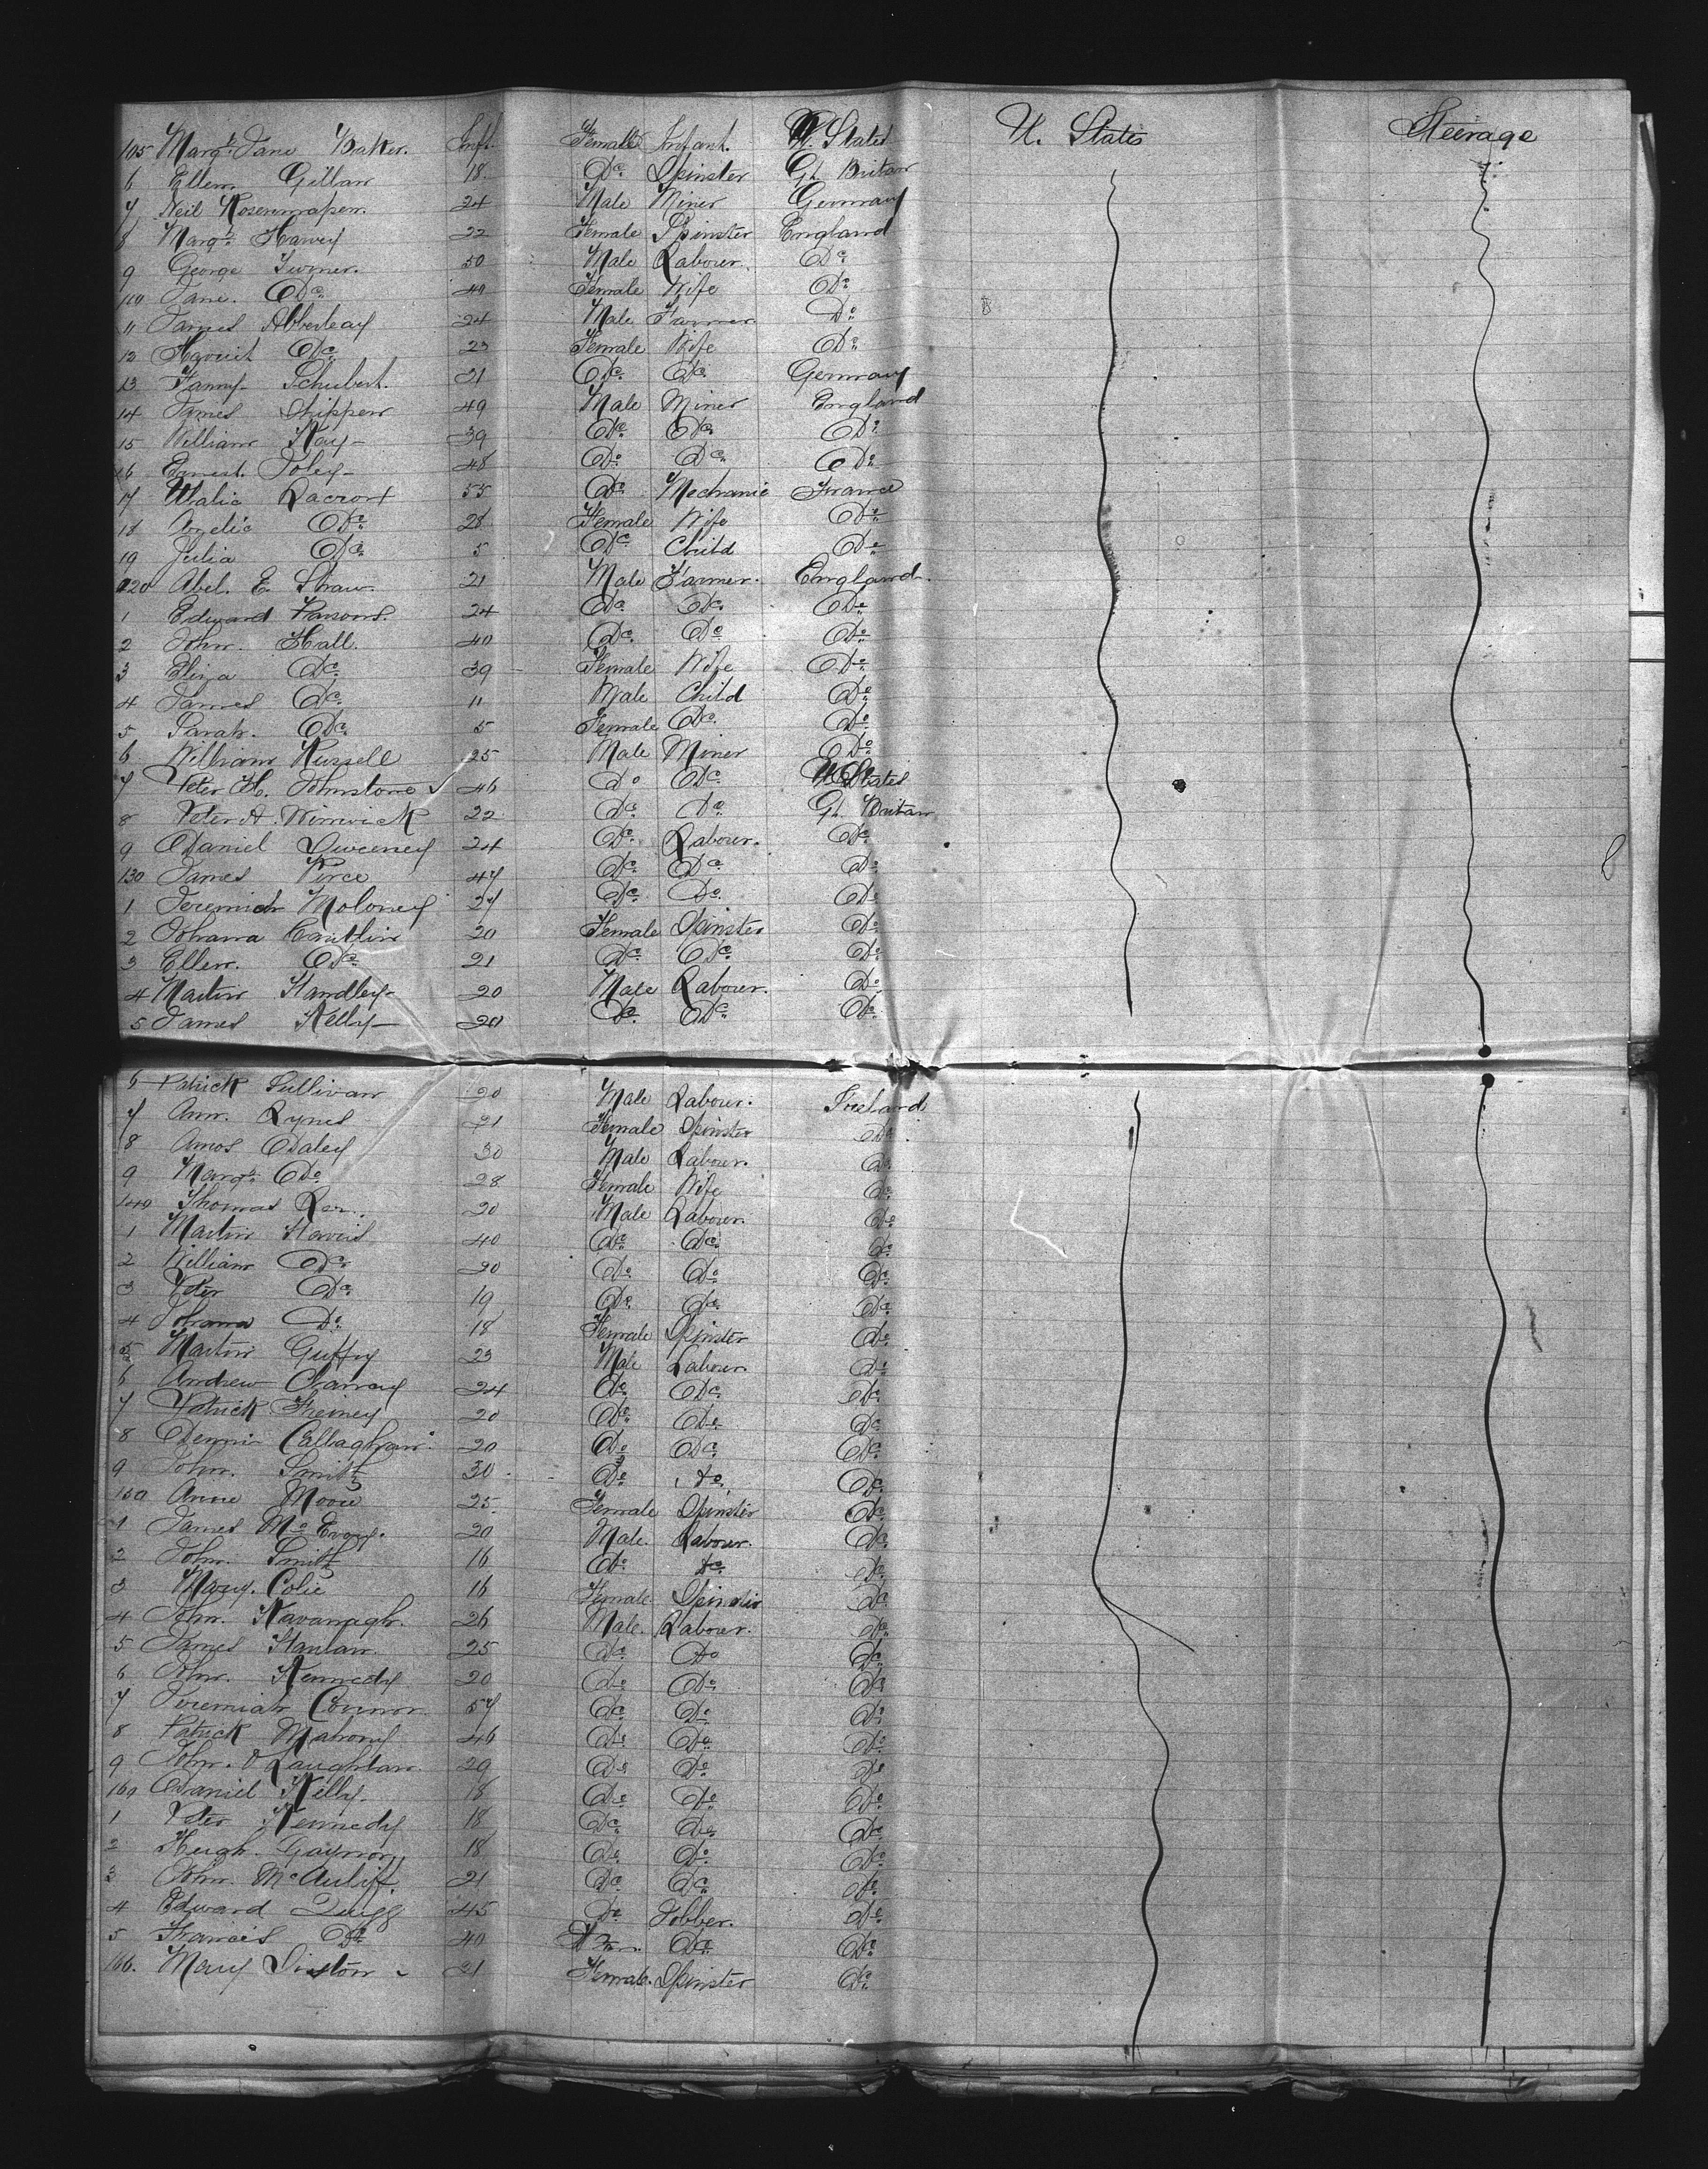 105 Margt Jane Baker. Inft. Female Infant. U. States U. States Steerage
6 Ellen Gillan 18 Do Spinster Gt. Britain
7 Neil 24 Male Miner Germany
8 Margt Harvey 22 Female Spinster England
9 George Turner. 50 Male Labour. Do
110 Jane. Do 40 Female Wife Do
11 James Abberleay 24 Male Farmer Do
12 Do 23 Female Wife Do
13 Fanny Schubert. 21 Do Do Germany
14 James Shippen 49 Male Miner England
15 William Kay 39 Do Do Do
16 Ernest. Foley 48 Do Do Do
17 Lacroix 55 Do Mechanic France
18 Do 28 Female Wife Do
19 Julia Do 5 Do Child Do
120 Abel. E. Shaw 21 Male Farmer. England.
1 Edward Parsons. 24 Do Do Do
2 John. Hall. 40 Do Do Do
3 Eliza Do 39 Female Wife Do
4 James Do 11 Male Child Do
5 Sarah. Do 5 Female Do Do
6 William Russell 25 Male Miner Do
7 Peter H. Johnstone 46 Do Do U States
8 Peter A. Winwick 22 Do Do Gt. Britain
9 Daniel Sweeney 24 Do Labour. Do
130 James Pirce 47 Do Do Do
1 Jeremiah Moloney 27 Do Do Do
2 Johana Cantlin 20 Female Spinster Do
3 Ellen. Do 21 Do Do Do
4 Martin Handley 20 Male Labour. Do
5 James Kelly 20 Do Do Do
6 Patrick Sullivan 20 Male Labour. Ireland
7 Ann. Lynes 21 Female Spinster Do
8 Amos Daley 30 Male Labour. Do
9 Margt Do 28 Female Wife Do
140 Thomas 20 Male Labour Do
1 Martin Harris 40 Do Do Do
2 William Do 20 Do Do Do
3 Peter Do 19 Do Do Do
4 Johana Do 18 Female Spinster Do
5 Martin Guffy 23 Male Labour Do
6 Andrew Clancy 24 Do Do Do
7 Patrick Freiney 20 Do Do Do
8 Dennis Callaghan 20 Do Do Do
9 John. Smith 30 Do Do Do
150 Anne Moore 25 Female Spinster Do
1 James McEvoy. 20 Male. Labour. Do
2 John. Smith 16 Do Do Do
3 Mary. Colie 16 Female Spinster Do
4 John. Kavanagh. 26 Male. Labour. Do
5 James Hanlan. 25 Do Do Do
6 John. Kennedy 20 Do Do Do
7 Jeremiah Connor. 57 Do Do Do
8 Patrick Mahony 46 Do Do Do
9 John. O Laughlan. 29 Do Do Do
160 Daniel Kelly. 18 Do Do Do
1 Peter Kennedy 18 Do Do Do
2 Hugh. Gaynor 18 Do Do Do
3 John. McAuliff. 21 Do Do Do
4 Edward Quigg 45 Do Jobber. Do
5 Francis Do 40 Do Do
166. Mary 21 Female. Spinster Do